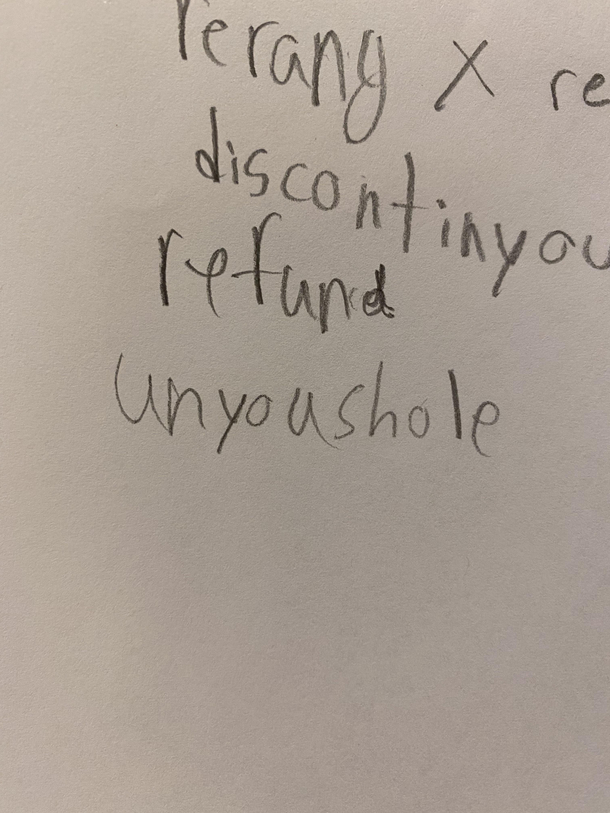 rerang X re
discontinyou
refund
unyoushole